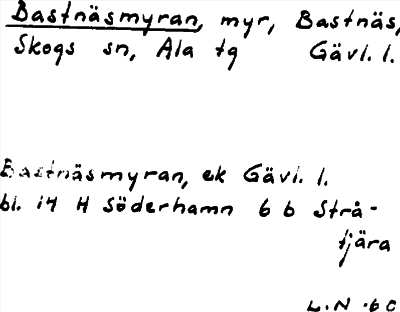 Bastnäsmyran, myr, Bastnäs,
Skogs sn, Ala tg Gävl. l.
Bastnäsmyran, ek Gävl. l.
bl. 14 H Söderhamn 6 b Strå-
tjära
L.N -60